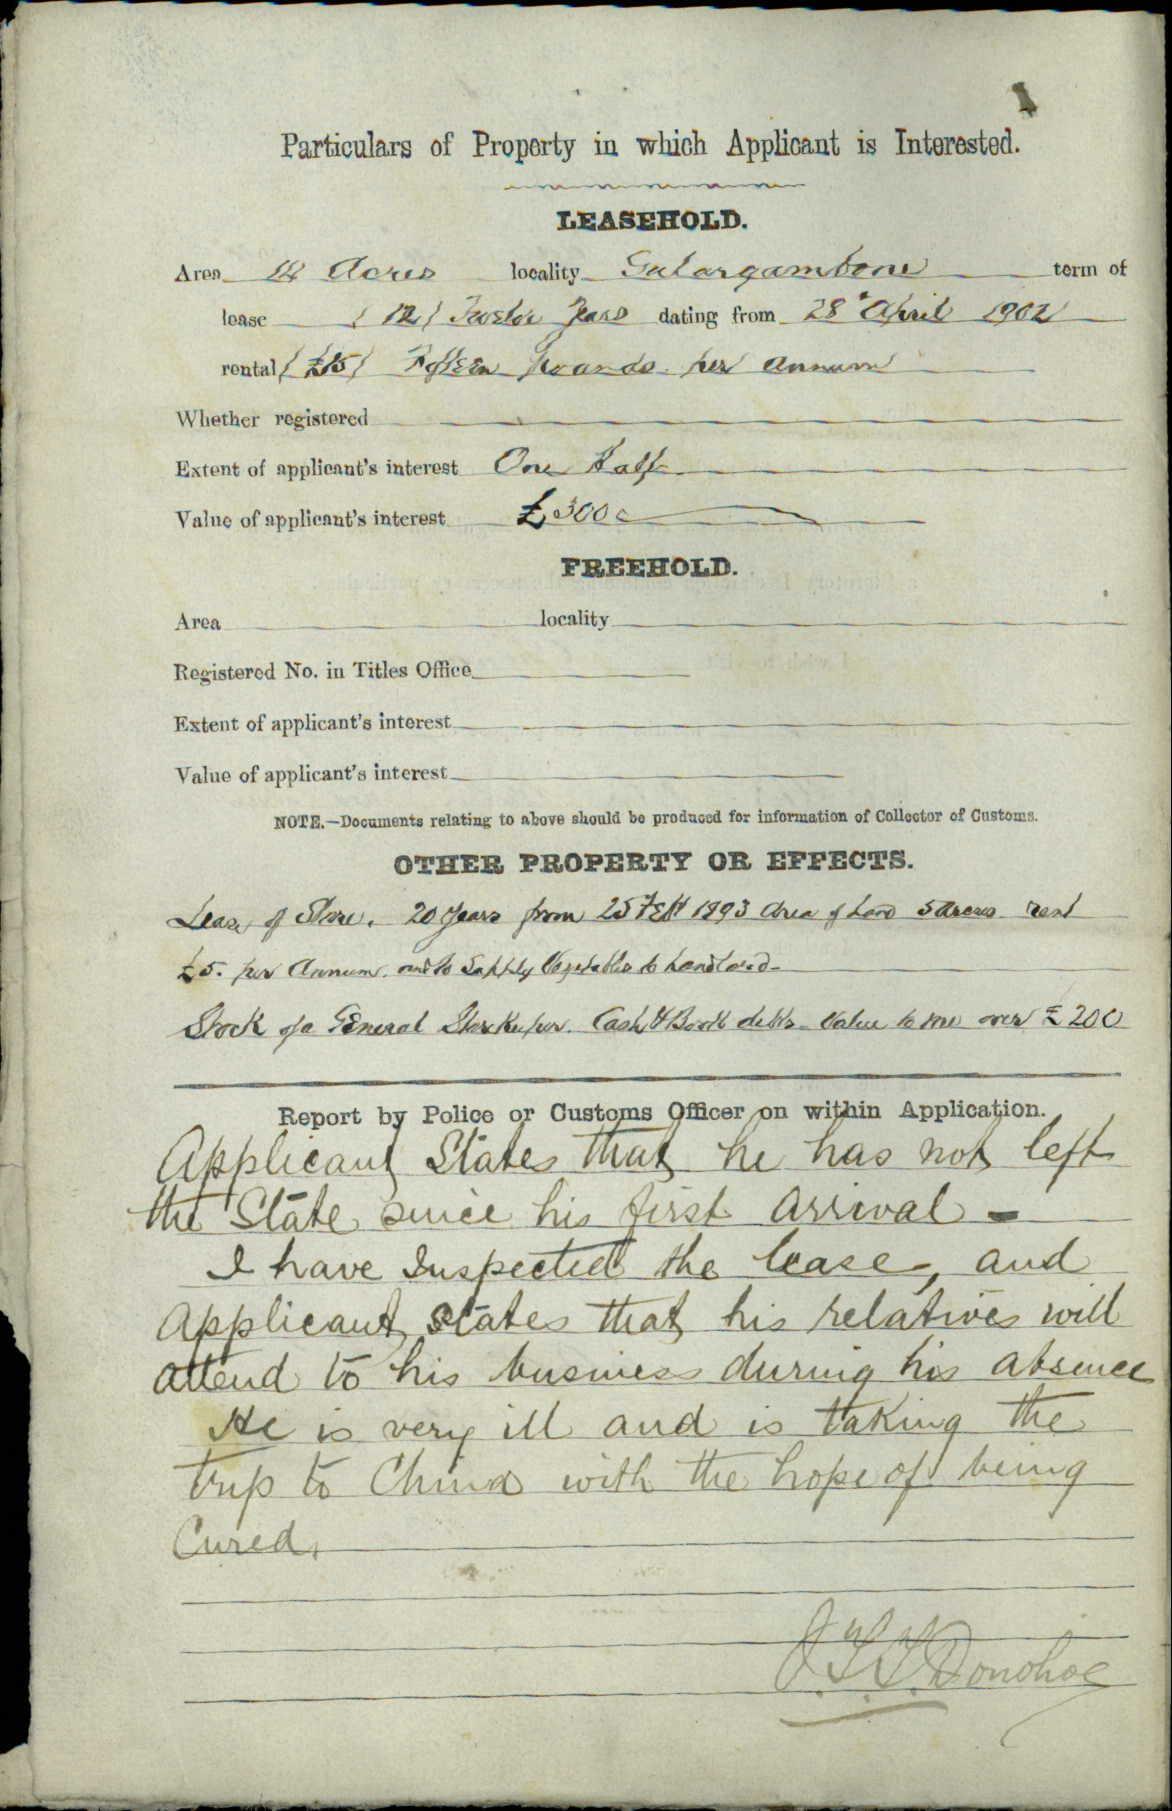 Particulars of Property in which Applicant is Interested.
LEASEHOLD.
Area Acres locality Gulargambone term of
lease (12) Twelve Years dating from 28 April 1902
rental (£15) Fifteen pounds per annum
Whether registered
Extent of applicant's interest One Half
Value of applicant's interest £300
FREEHOLD.
Area locality
Registered No. in Titles Office
Extent of applicant's interest
Value of applicant's interest
NOTE.—Documents relating to above should be produced for information of Collector of Customs.
OTHER PROPERTY OR EFFECTS.
Lease of Store. 20 years from 25 Sept 1893 Area of Land 5 Acres rent
£5. per Annum. and to Supply Vegetables to Landlord-
Stock of a General Storekeeper. Cash & Book debts. Value to me over £200
Report by Police or Customs Officer on within Application.
Applicant States that he has not left
the State since his first arrival -
I have Inspected the lease, and
applicant states that his relatives will
attend to his business during his absence
He is very ill and is taking the
trip to China with the hope of being
Cured.
Donohoe